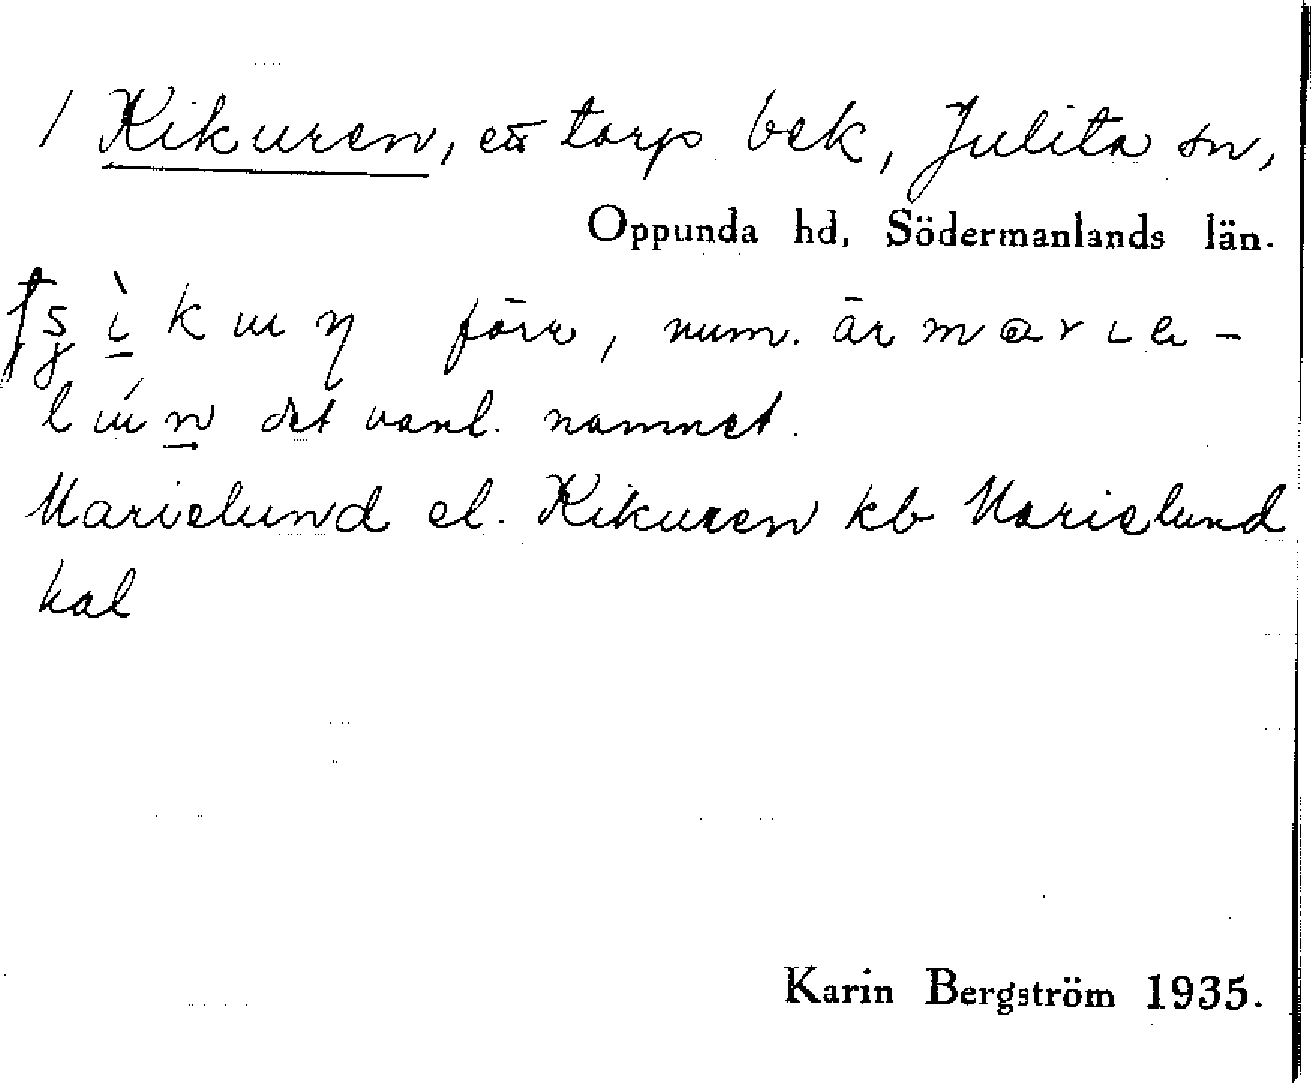 / Kikuren, ett torp bek, Julita sn,
Oppunda hd, Södermanlands län.
förr, num. är
det vanl. namnet.
Marielund el. Kikuren kb Marielund
hal
Karin Bergström 1935.